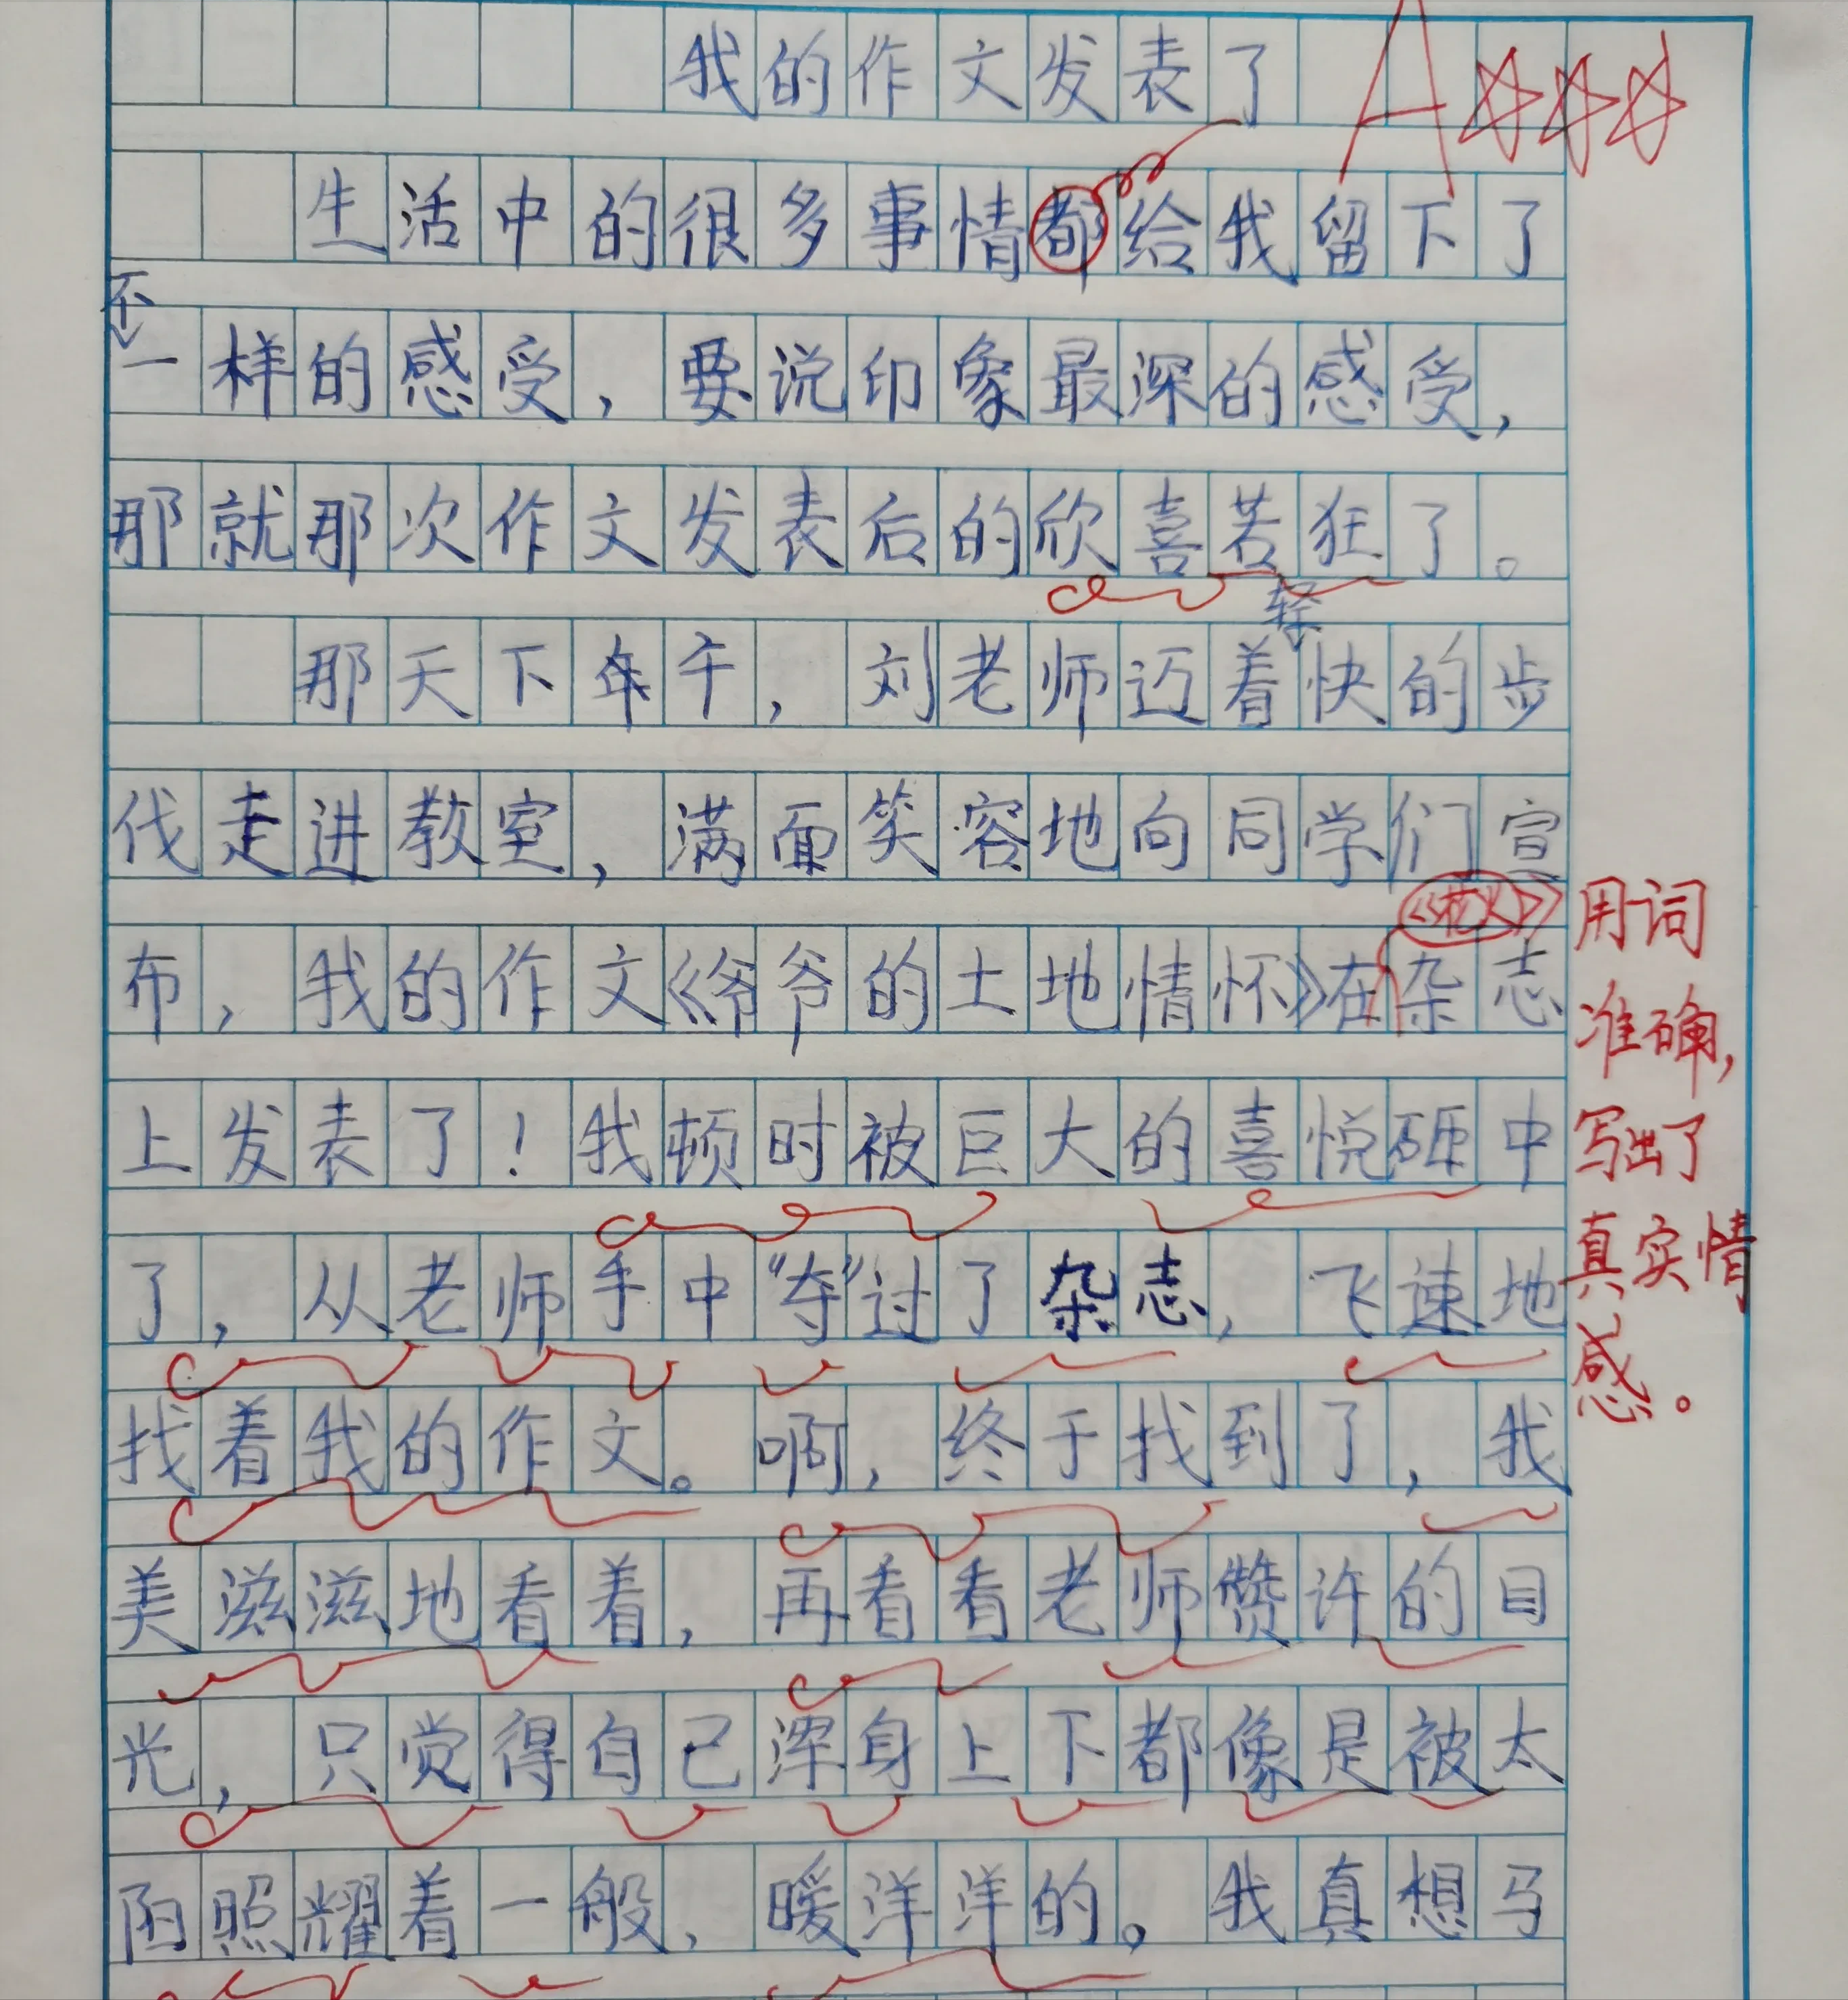 我的作文发表了
A
生活中的很多事情都给我留下了
不
一样的感受，要说印象最深的感受，
那就那次作文发表后的欣喜若狂了。
轻
那天下午，刘老师迈着快的步
伐走进教室，满面笑容地向同学们宣
布，我的作文《爷爷的土地情怀》在杂志
上发表了！我顿时被巨大的喜悦砸中
了，从老师手中“夺”过了杂志，飞速地
找着我的作文。啊，终于找到了，我
美滋滋地看着，再看看老师赞许的目
光，只觉得自己浑身上下都像是被太
阳照耀着一般，暖洋洋的。我真想马
用词
准确，
写出了
真实情
感。